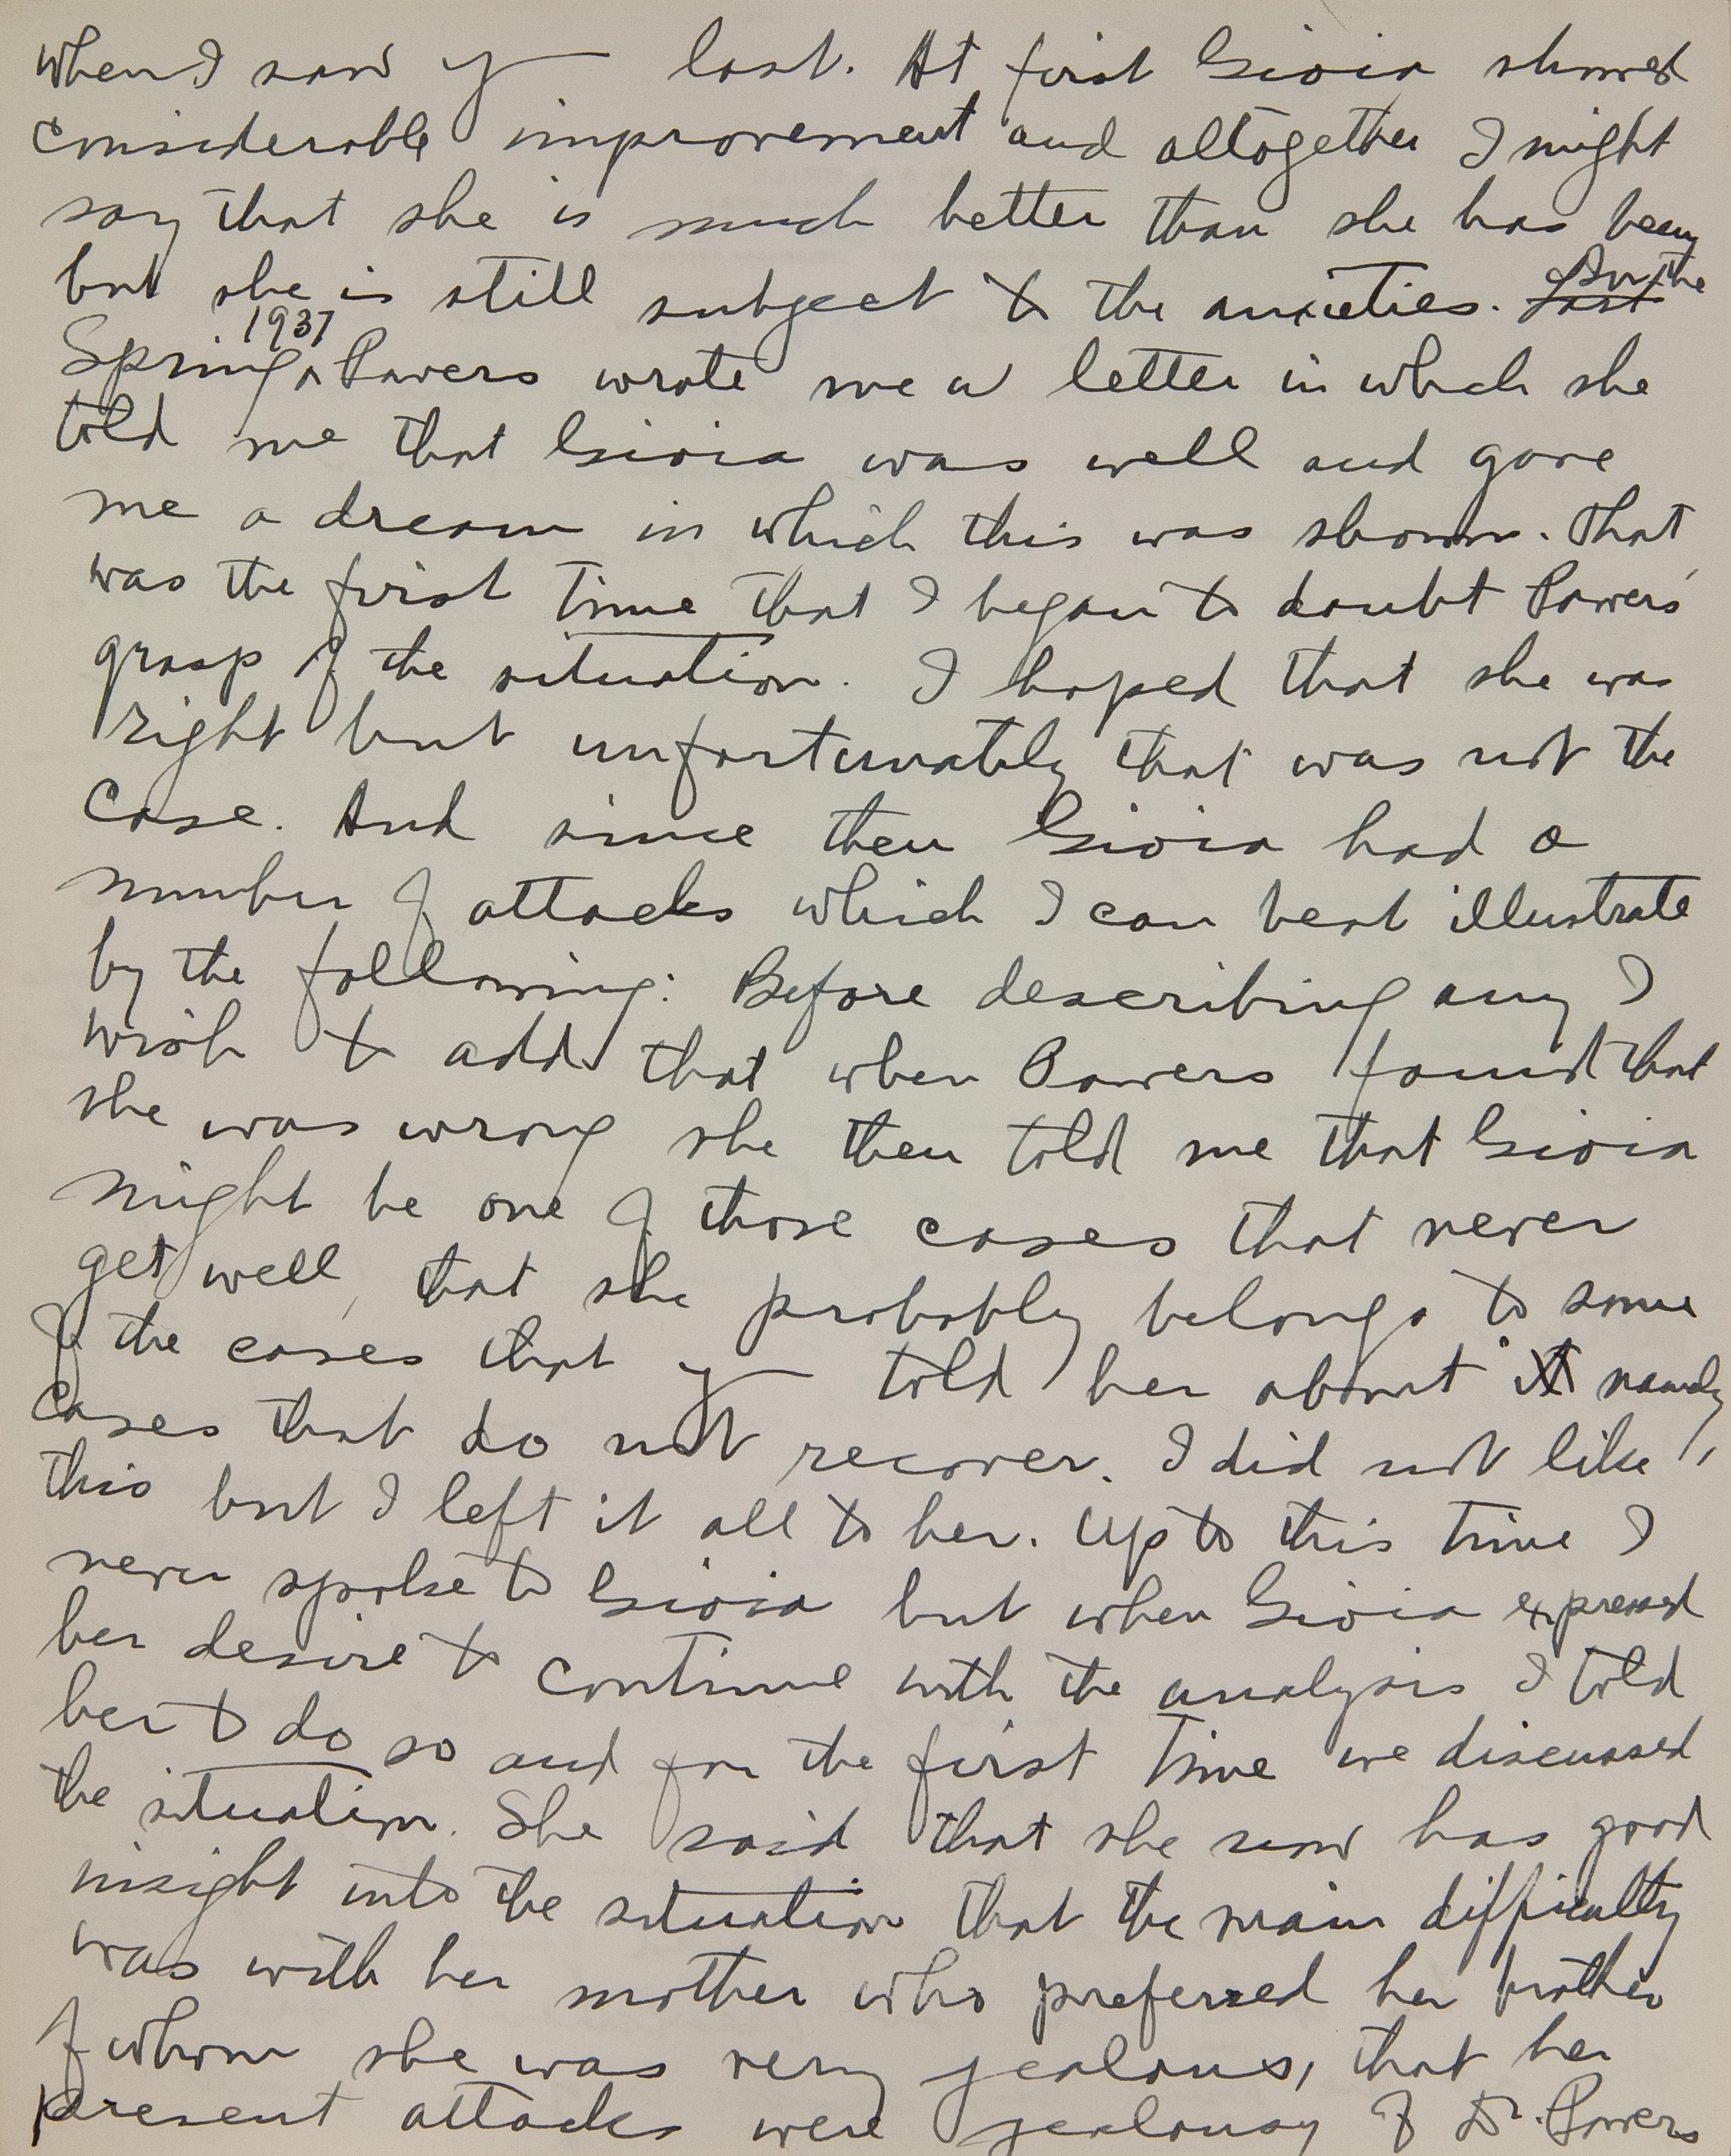 when I saw you last. At first Gioia showed
considerable improvement and altogether I might
say that she is much better than she has been,
but she is still subject to the anxieties. Last In the
Spring 1937 Powers wrote me a letter in which she
told me that Gioia was well and gave
me a dream in which this was shown. That
was the first time that I began to doubt Powers'
grasp of the situation. I hoped that she was
right but unfortunately that was not the
case. And since then Gioia had a
number of attacks which I can best illustrate
by the following: Before describing any I
wish to add that when Powers found that
she was wrong she then told me that Gioia
might be one of those cases that never
get well, that she probably belongs to some
of the cases that you told her about it namely,
cases that do not recover. I did not like
this but I left it all to her. Up to this time I
never spoke to Gioia but when Gioia expressed
her desire to continue with the analysis I told
her to do so and for the first time we discussed
the situation. She said that she now has good
insight into the situation that the main difficulty
was with her mother who preferred her brother
of whom she was very jealous, that her
present attacks were jealousy of Dr. Powers